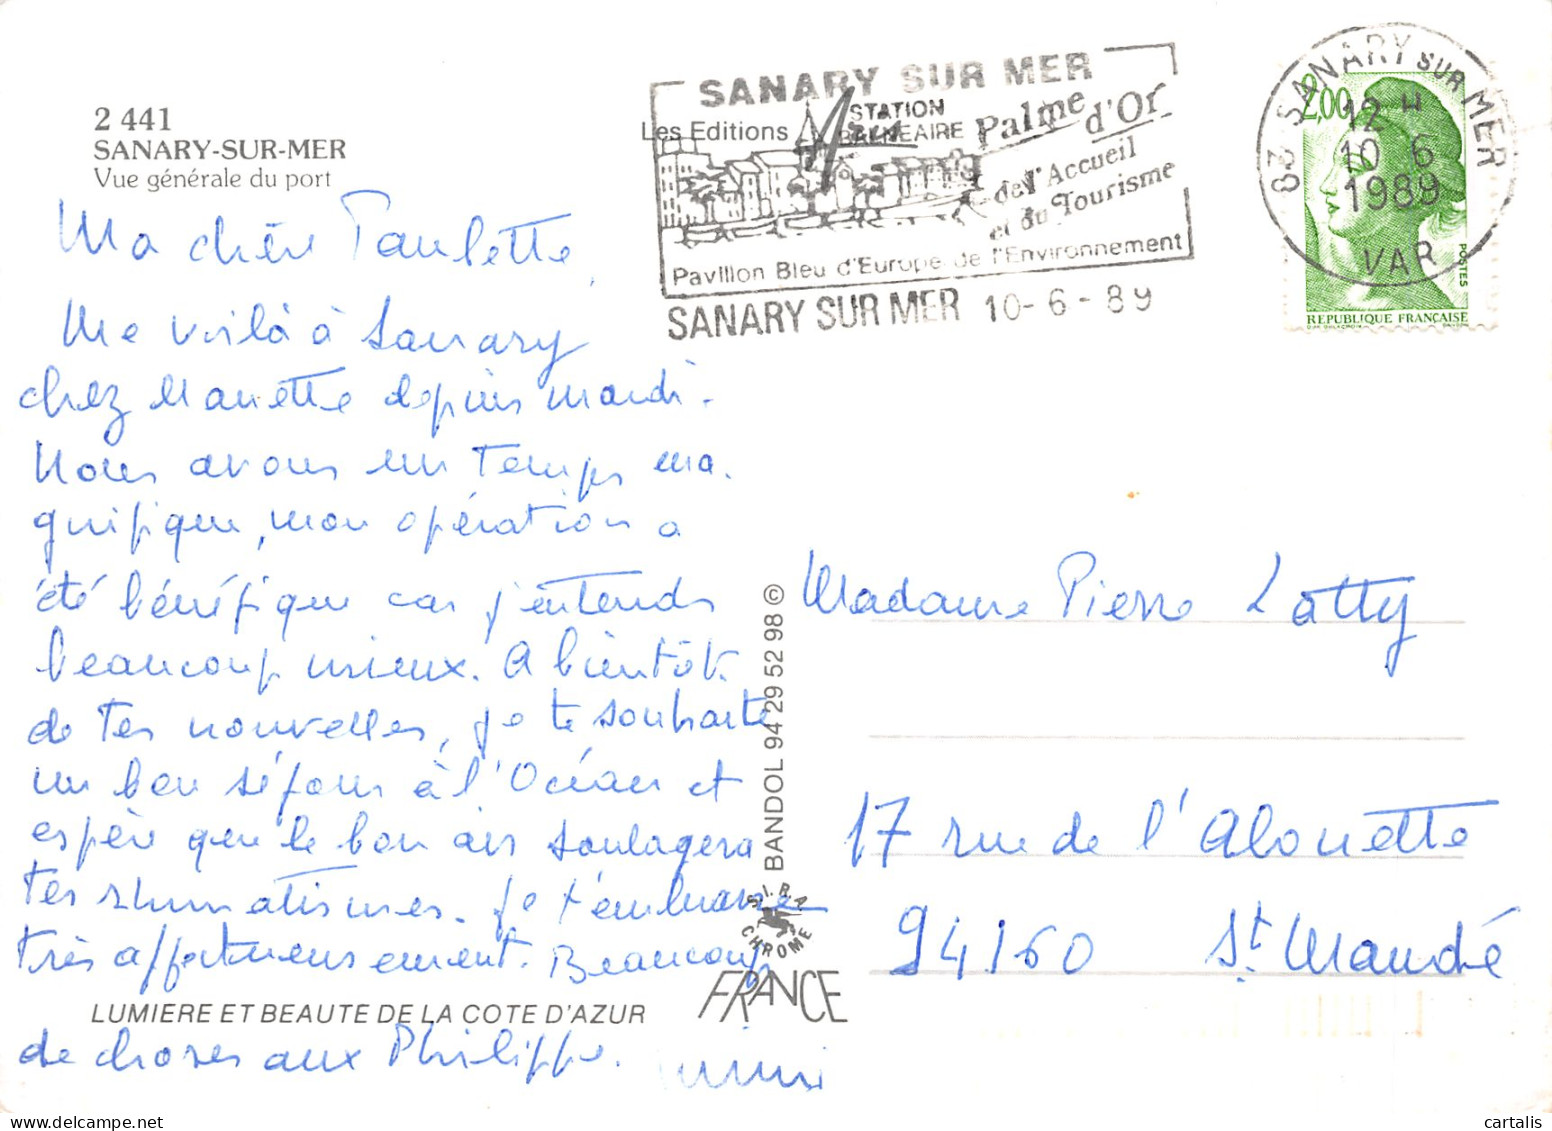 2 441
SANARY-SUR-MER
Vue générale du port
Ma chère Paulette,
Me voilà à Sanary
chez Manette depuis mardi.
Nous avons un temps ma-
gnifique, mon opération a
été bénéfique car j'entends
beaucoup mieux. A bientôt
de tes nouvelles, je te souhaite
un bon séjour à l'Océan et
espère que le bon air soulagera
tes rhumatismes. Je t'embrasse
très affectueusement. Beaucoup
LUMIERE ET BEAUTE DE LA COTE D'AZUR
de choses aux Philippe.
Mimi
SANARY SUR MER
STATION
BALNEAIRE
Les Editions
Palme d'Or
de l'Accueil
et du Tourisme
Pavillon Bleu d'Europe de l'Environnement
SANARY SUR MER 10-6-89
83 SANARY SUR MER
12 H
10 6
1989
VAR
2,00
POSTES
REPUBLIQUE FRANÇAISE
BANDOL 94 29 52 98 ©
S.I.R.A.
CHROME
FRANCE
Madame Pierre Latty
17 rue de l'Alouette
94160 St Mandé
cartalis